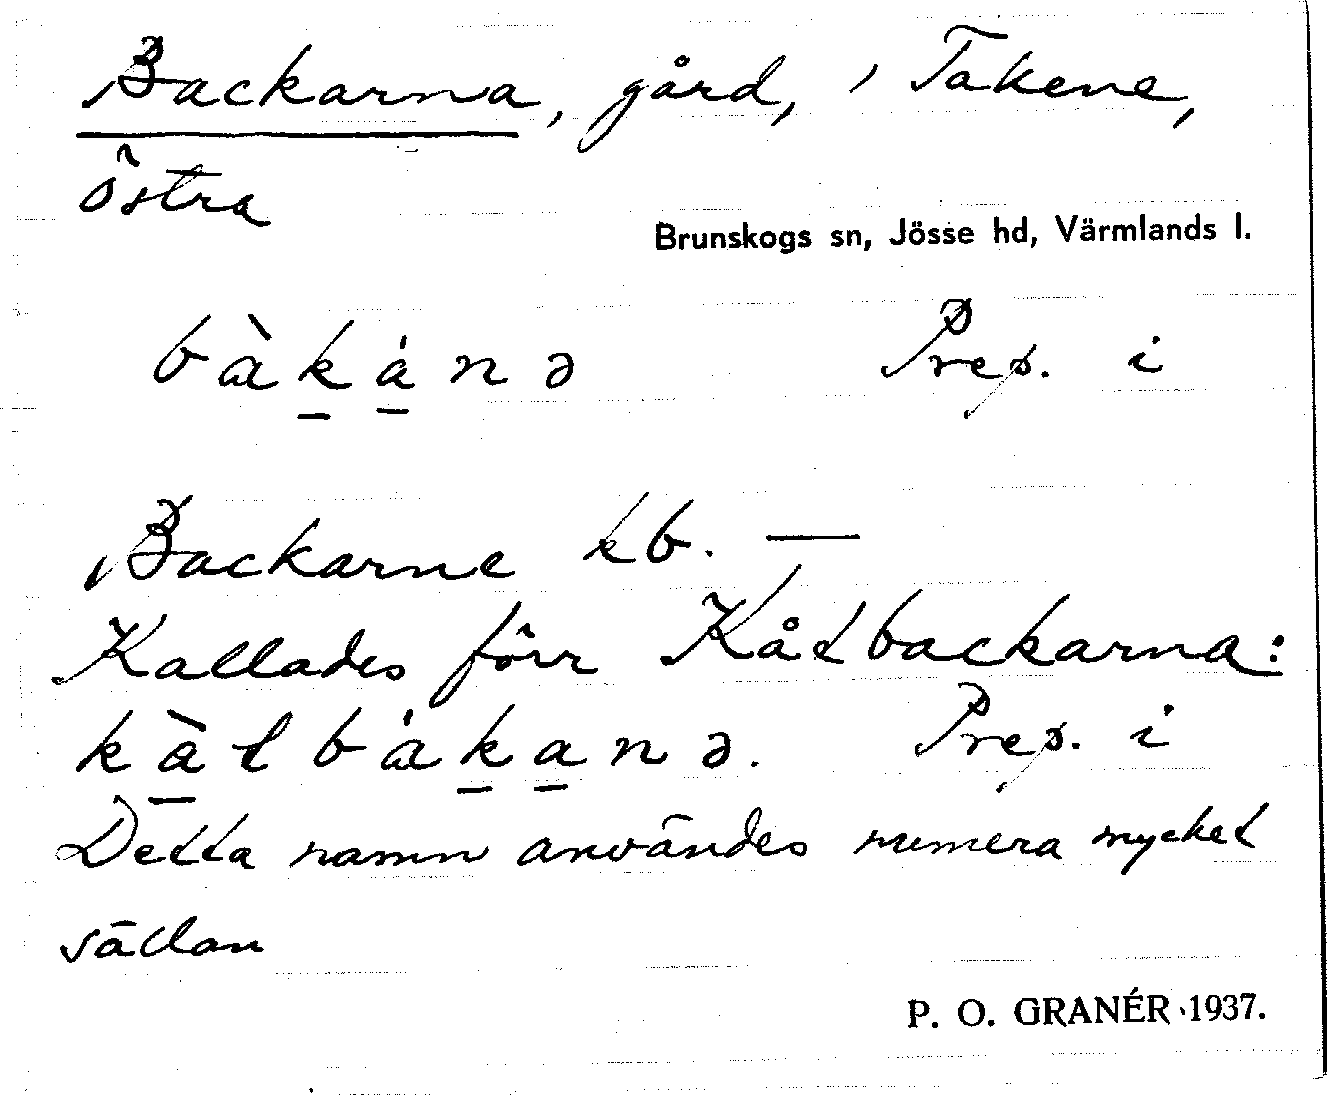 Backarna, gård, i Takene,
östra
Brunskogs sn, Jösse hd, Värmlands l.
bàkánə Prep. i
Backarne kb. —
Kallades förr Kåtbackarna:
kàtbákanə. Prep. i
Detta namn användes numera mycket
sällan
P. O. GRANÉR 1937.